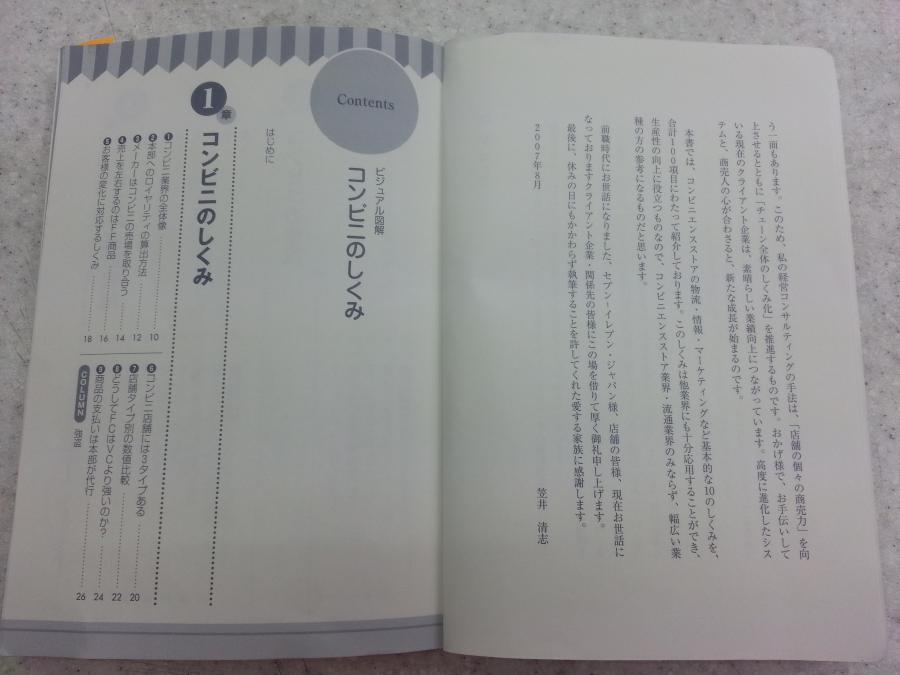 う一面もあります。このため、私の経営コンサルティングの手法は、「店舗の個々の商売力」を向
上させるとともに「チェーン全体のしくみ化」を推進するものです。おかげ様で、お手伝いして
いる現在のクライアント企業は、素晴らしい業績向上につながっています。高度に進化したシス
テムと、商売人の心が合わさると、新たな成長が始まるのです。
本書では、コンビニエンスストアの物流・情報・マーケティングなど基本的な10のしくみを、
合計100項目にわたって紹介しております。このしくみは他業界にも十分応用することができ、
生産性の向上に役立つものなので、コンビニエンスストア業界・流通業界のみならず、幅広い業
種の方の参考になるものだと思います。
前職時代にお世話になりました、セブン-イレブン・ジャパン様、店舗の皆様、現在お世話に
なっておりますクライアント企業・関係先の皆様にこの場を借りて厚く御礼申し上げます。
最後に、休みの日にもかかわらず執筆することを許してくれた愛する家族に感謝します。
2007年8月
笠井 清志
Contents
ビジュアル図解
コンビニのしくみ
はじめに
1章 コンビニのしくみ
❶コンビニ業界の全体像 10
❷本部へのロイヤリティの算出方法 12
❸メーカーはコンビニの売場を取り合う 14
❹売上を左右するのはFF商品 16
❺お客様の変化に対応するしくみ 18
❻コンビニ店舗には3タイプある 20
❼店舗タイプ別の数値比較 22
❽どうしてFCはVCより強いのか? 24
❾商品の支払いは本部が代行 26
COLUMN 強盗